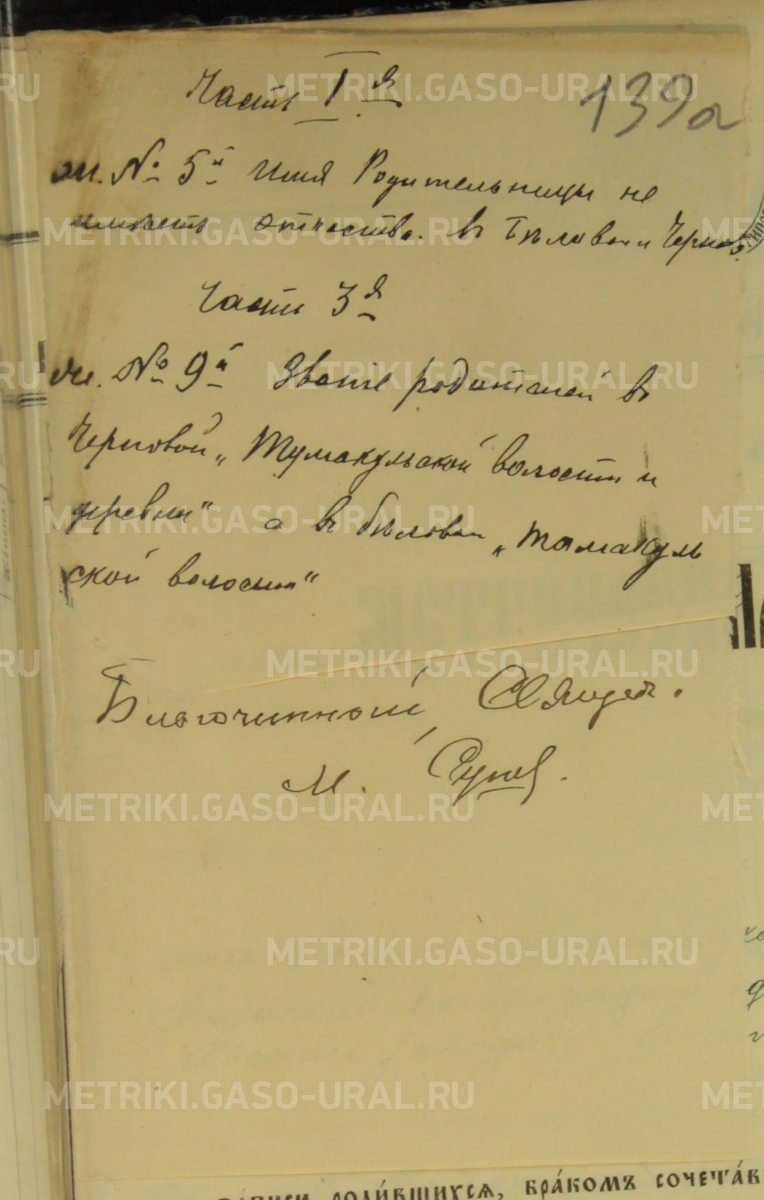 139а
Часть I я
м. № 5й Имя Родительницы не
имѣетъ отчества. въ Бѣловой и Чернов.
Часть 3я
м. № 9й Званіе родителей въ
Черновой „Тумакульской волости и
деревни“ а въ бѣловой „Тамакуль
ской волости“
Благочинный, Священ.
М.
METRIKI.GASO-URAL.RU
записи родившихся, бракомъ сочетав